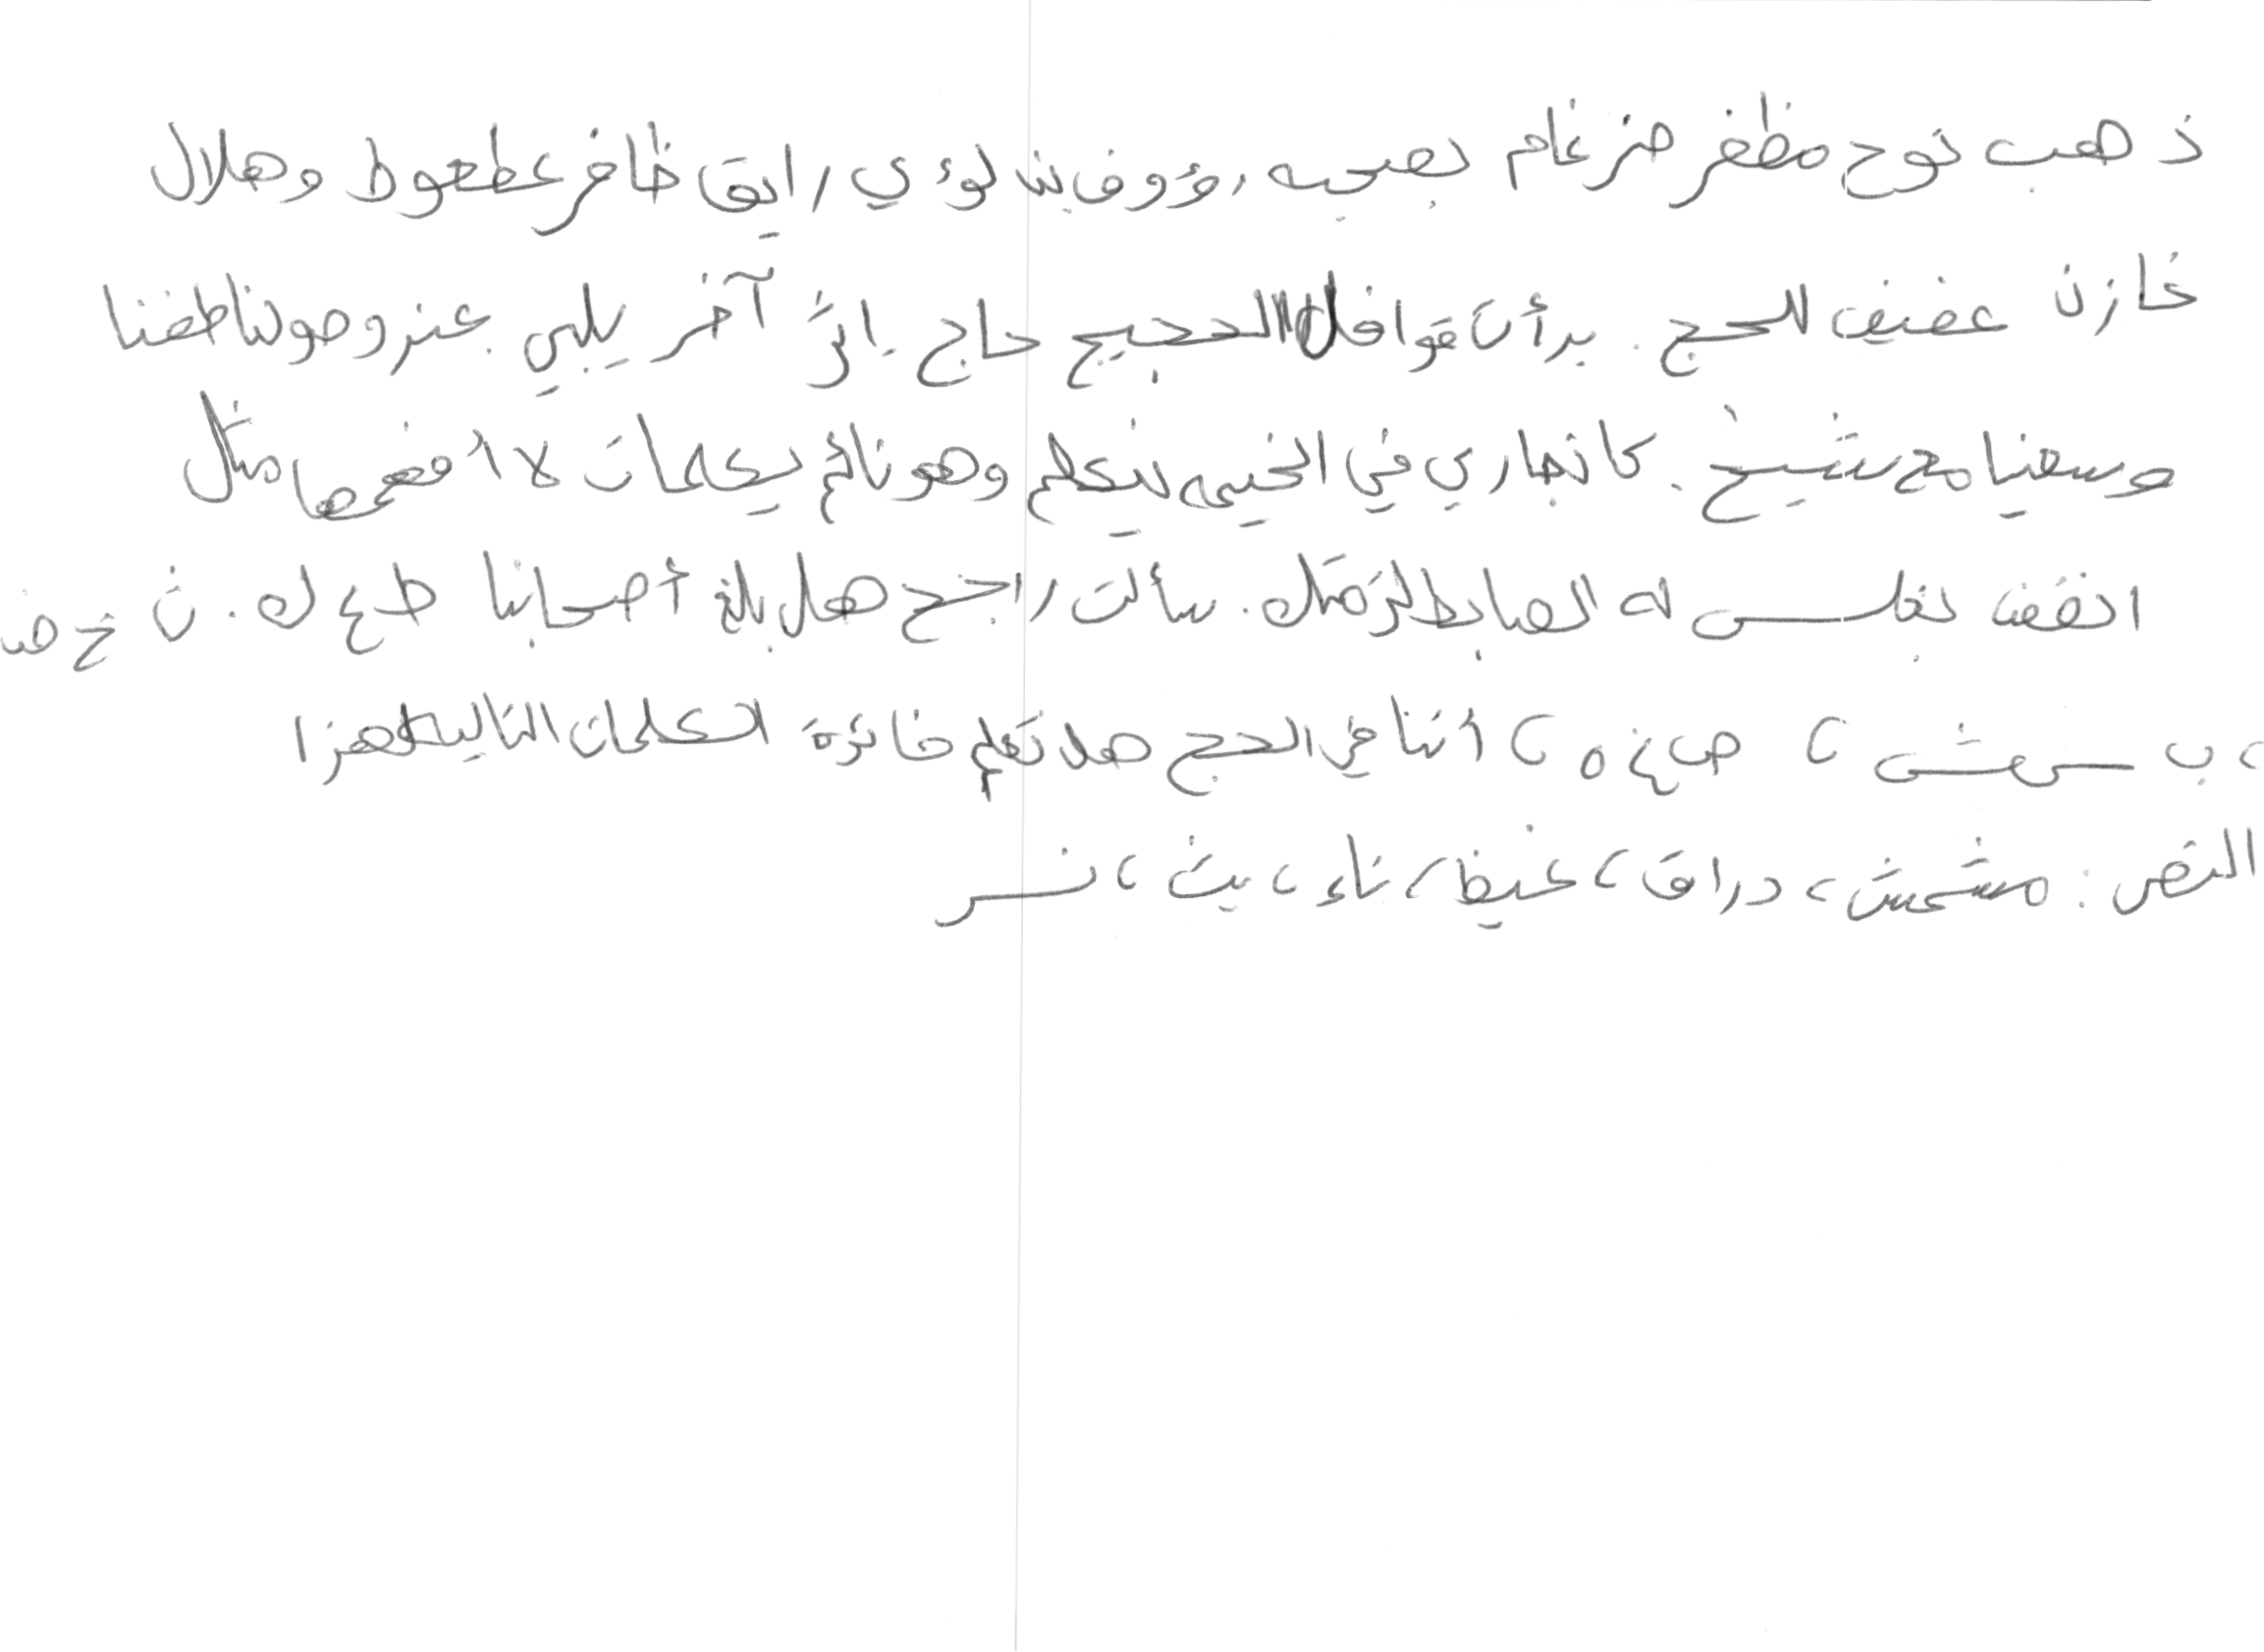 ذهب نوح مظفر ضرغام بصحبه رؤوف بن لؤي رايق ظافر عطعوط وهلال
خازن عفيف للحج . بدأت قوافل الحجيج حاج إثر آخر يلبي . عند وصولنا طفنا
وسعينا مع شيخ . كان جاري في الخيمه يتكلم وهو نائم بكلمات لا أفهمها مثل
انقض بغلس له الضابط لزقتك . سألت راجح هل بلغ أصحابنا ط ع ك . ث خ ض
، ب س ش ، ص غ ه ، أننا في الحج هلا تعلم فائدة الكلمات التاليه لهذا
النص : مشمش ، دراق ، غيظ ، ناء ، بث ، نسر